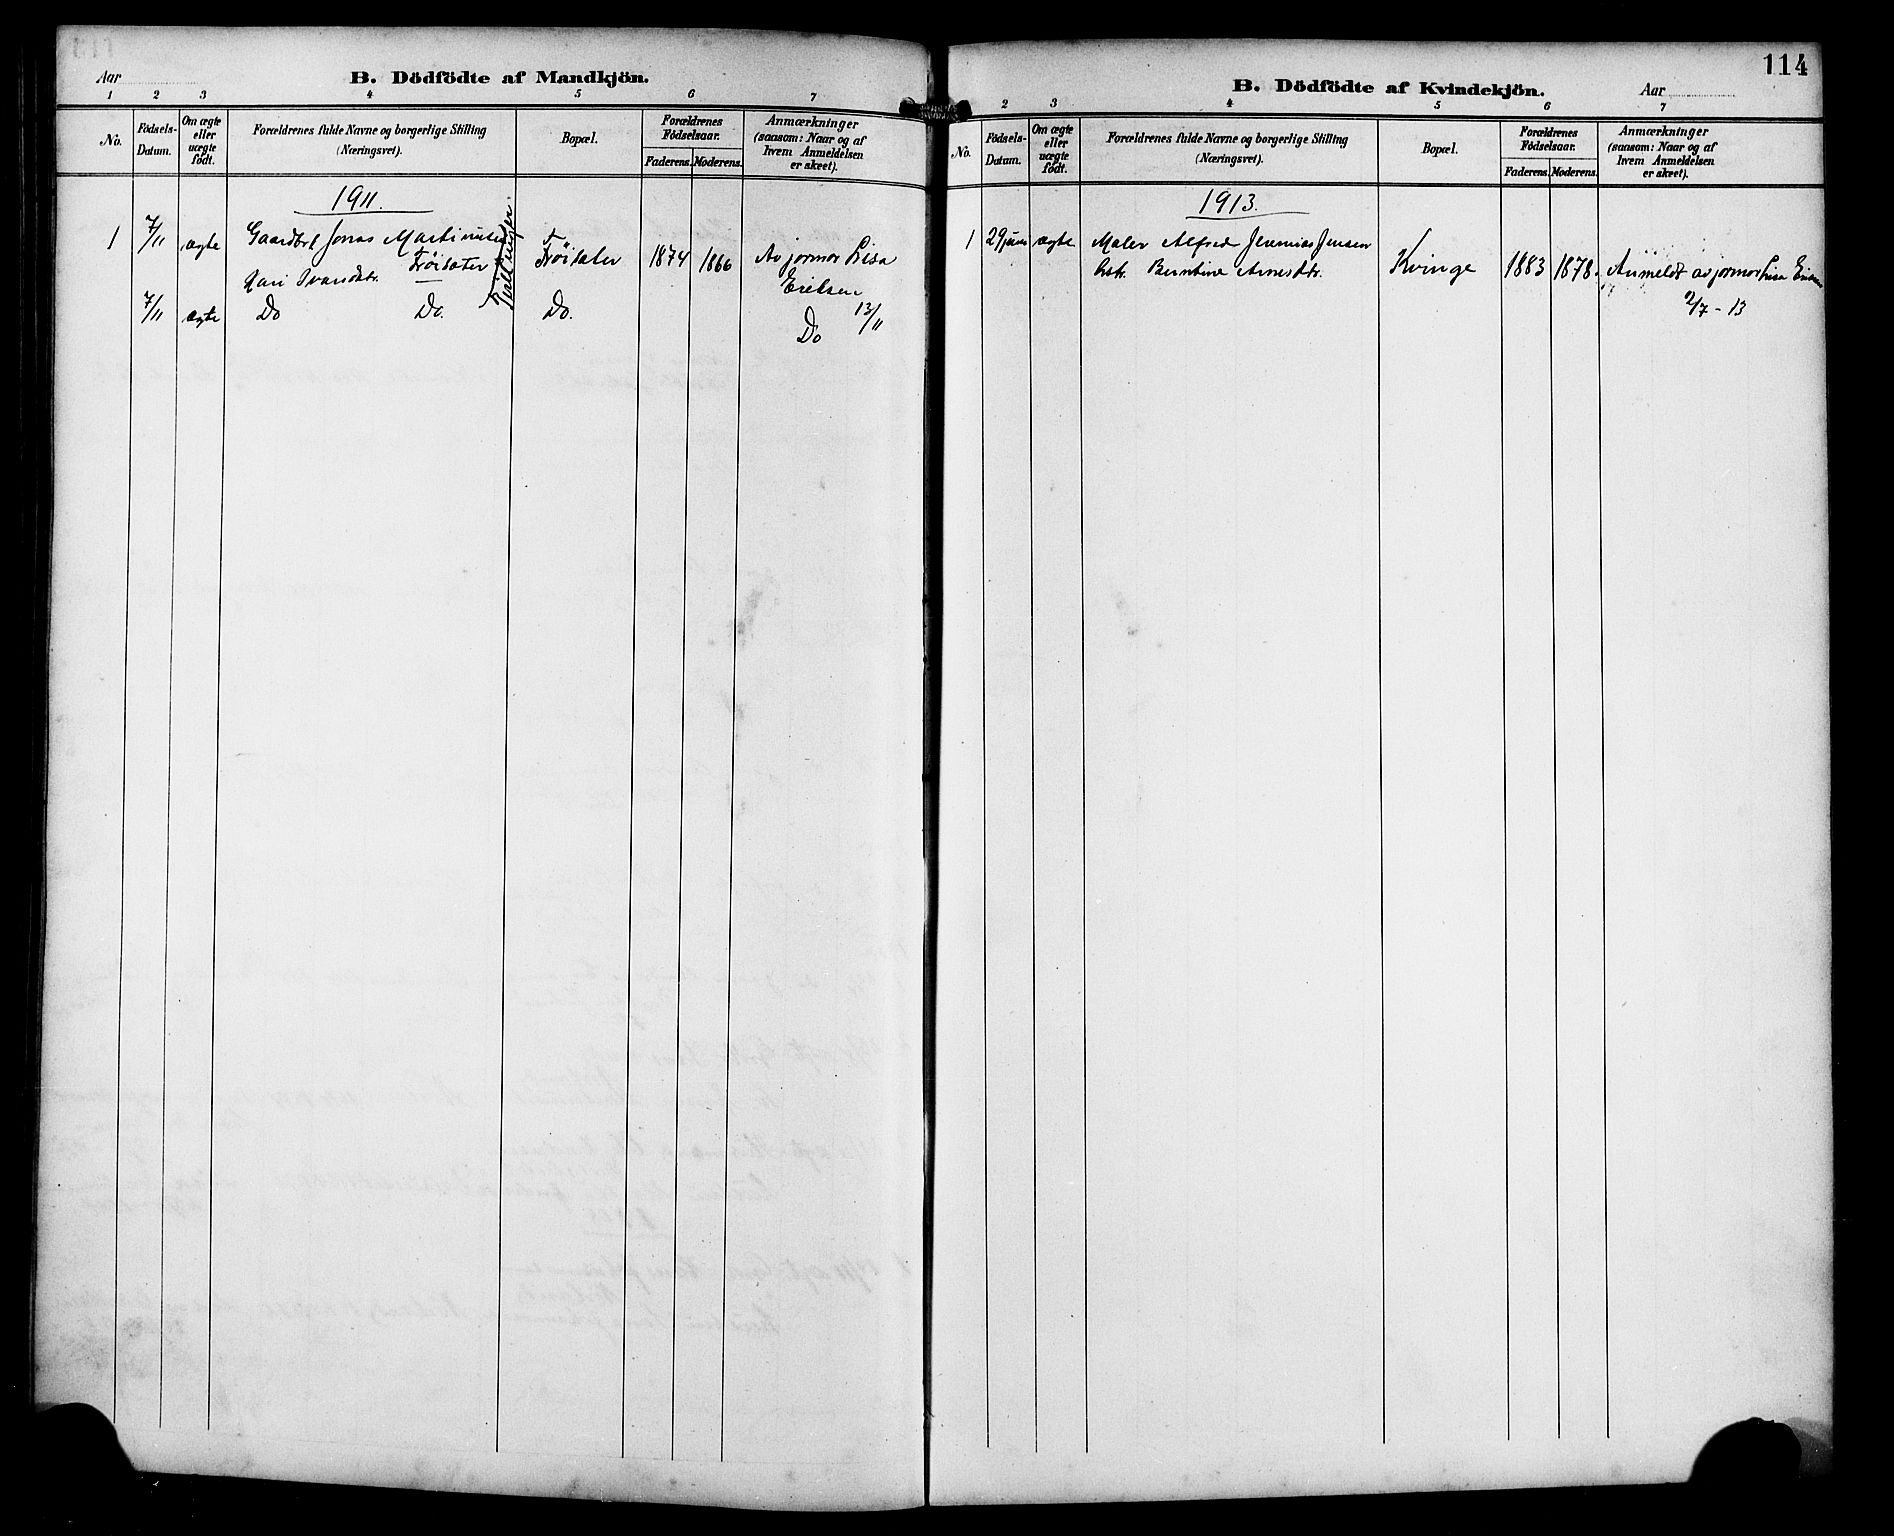 Aar
B. Dödfödte af Mandkjön.
1 2 3 4 5 6 7
No.
Födsels-
Datum.
Om ægte
eller
uægte
födt.
Forældrenes fulde Navne og borgerlige Stilling
(Næringsvei).
Bopæl.
Forældrenes
Födselsaar.
Faderens. Moderens.
Anmærkninger
(saasom: Naar og af
hvem Anmeldelsen
er skeet).
1911.
1 7/11 ægte Gaardbr. Jonas Martinusen Fröisæter 1874 1866 Av jormor Lisa
Fröisæter
Kari Ivarsdtr. Eriksen
13/11
7/11 ægte Do Do. Do. Do
Tvillinger.
114
B. Dödfödte af Kvindekjön.
Aar
2 3 4 5 6 7
No.
Födsels-
Datum.
Om ægte
eller
uægte
födt.
Forældrenes fulde Navne og borgerlige Stilling
(Næringsvei).
Bopæl.
Forældrenes
Födselsaar.
Faderens. Moderens.
Anmærkninger
(saasom: Naar og af
hvem Anmeldelsen
er skeet).
1913.
1 29 juni ægte Maler Alfred Jeremias Jensen
Berntine Arnesdtr. Kvinge 1883 1878. Anmeldt av jormor Lisa Eriksen
2/7 - 13